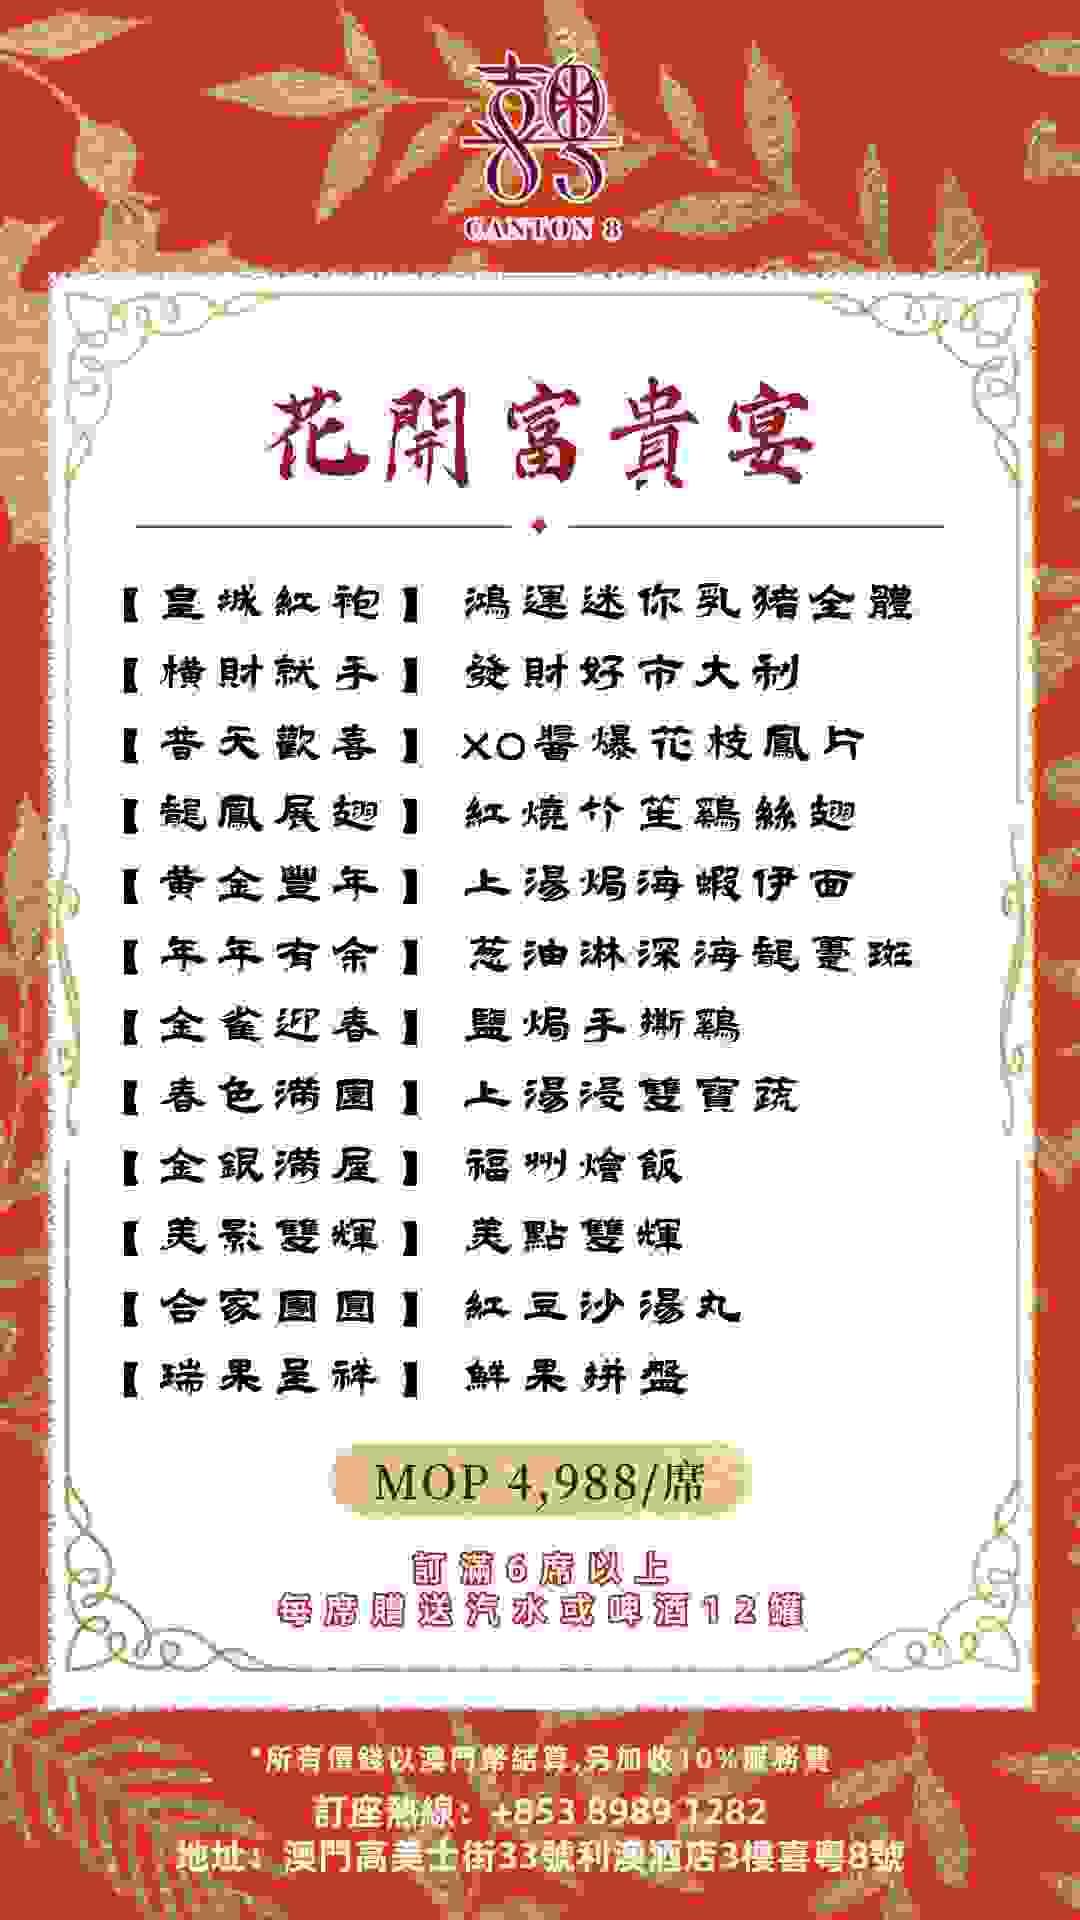 喜粵8號
CANTON 8
花開富貴宴
【皇城紅袍】 鴻運迷你乳豬全體
【橫財就手】 發財好市大利
【普天歡喜】 XO醬爆花枝鳳片
【龍鳳展翅】 紅燒竹笙鷄絲翅
【黄金豐年】 上湯焗海蝦伊面
【年年有余】 葱油淋深海龍躉斑
【金雀迎春】 鹽焗手撕鷄
【春色滿園】 上湯浸雙寶蔬
【金銀滿屋】 福州燴飯
【美影雙輝】 美點雙輝
【合家團圓】 紅豆沙湯丸
【瑞果呈祥】 鮮果拼盤
MOP 4,988/席
訂滿6席以上
每席贈送汽水或啤酒12罐
*所有價錢以澳門幣結算,另加收10%服務費
訂座熱線：+853 8989 1282
地址：澳門高美士街33號利澳酒店3樓喜粵8號